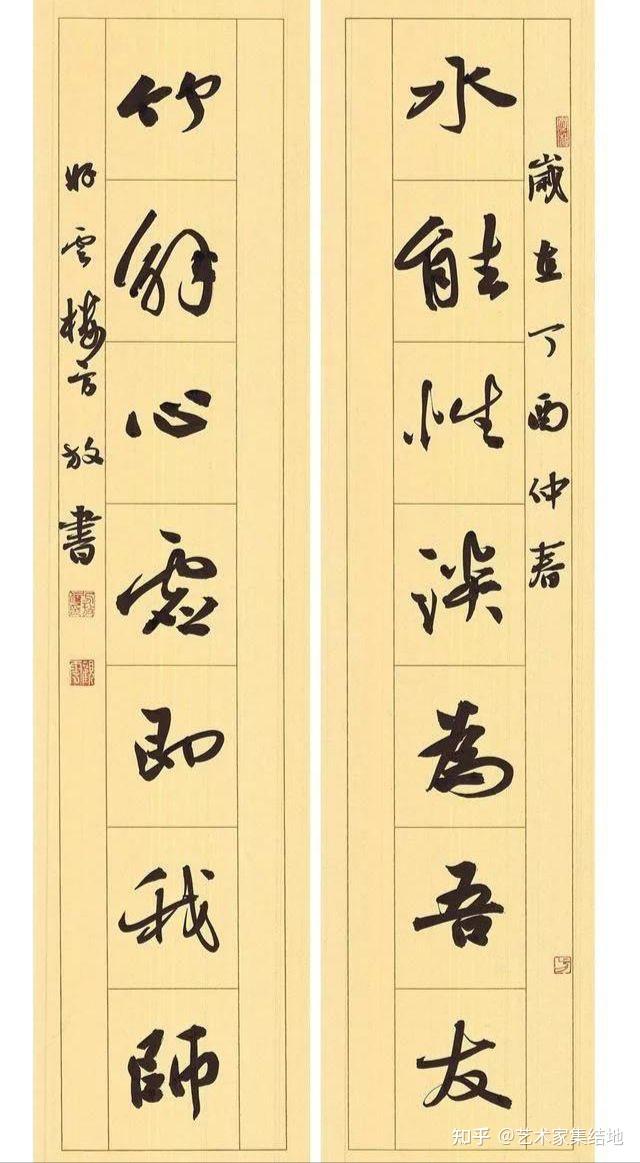 歲在丁酉仲春
水能性淡為吾友
竹解心虛即我師
好雲樓 放書
知乎 @艺术家集结地